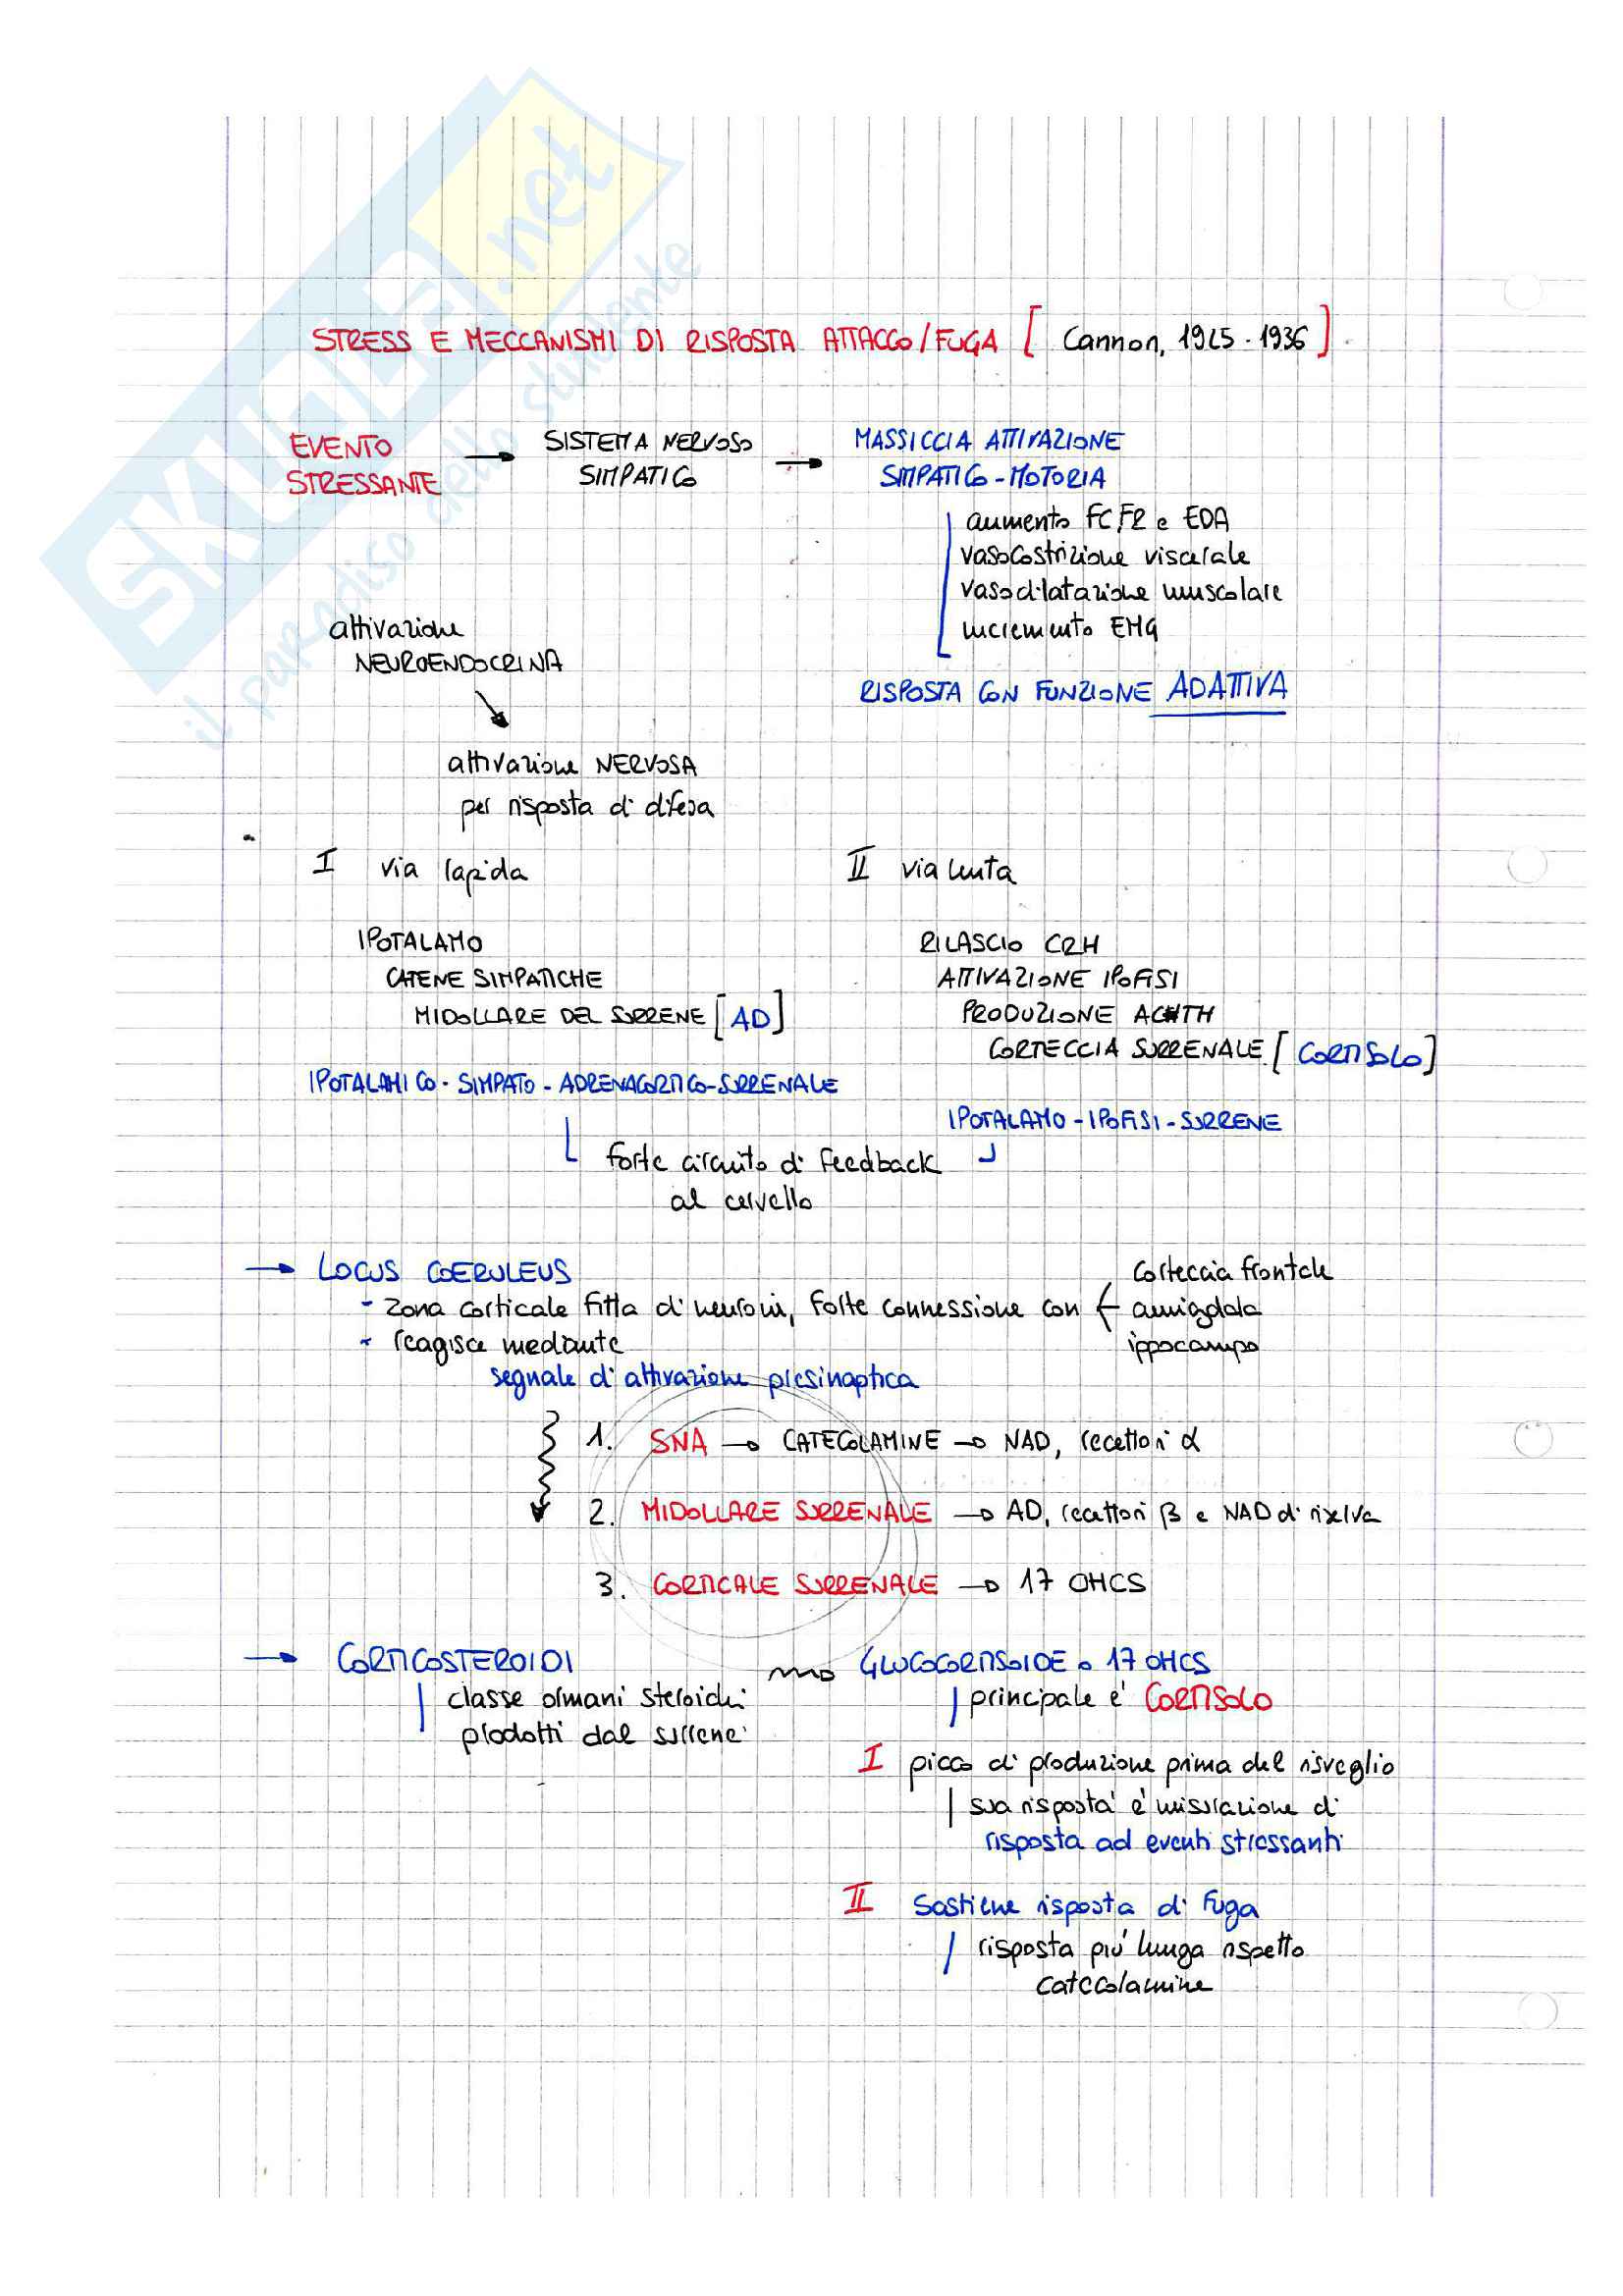 SKUOLA.net
il paradiso dello studente
STRESS E MECCANISMI DI RISPOSTA ATTACCO/FUGA [ Cannon, 1925-1936 ]
EVENTO STRESSANTE → SISTEMA NERVOSO SIMPATICO → MASSICCIA ATTIVAZIONE SIMPATICO-MOTORIA
aumento FC, FR e EDA
vasocostrizione viscerale
vasodilatazione muscolare
incremento EMG
RISPOSTA CON FUNZIONE ADATTIVA
attivazione
NEUROENDOCRINA
attivazione NERVOSA
per risposta di difesa
I via rapida
IPOTALAMO
CATENE SIMPATICHE
MIDOLLARE DEL SURRENE [AD]
IPOTALAMICO-SIMPATO-ADRENACORTICO-SURRENALE
II via lenta
RILASCIO CRH
ATTIVAZIONE IPOFISI
PRODUZIONE ACTH
CORTECCIA SURRENALE [CORTISOLO]
IPOTALAMO-IPOFISI-SURRENE
forte circuito di feedback
al cervello
→ LOCUS COERULEUS
- zona corticale fitta di neuroni, forte connessione con { corteccia frontale
amigdala
ippocampo
- reagisce mediante
segnale di attivazione presinaptica
1. SNA → CATECOLAMINE → NAD, recettori α
2. MIDOLLARE SURRENALE → AD, recettori β e NAD di riserva
3. CORTICALE SURRENALE → 17 OHCS
→ CORTICOSTEROIDI
classe ormoni steroidei
prodotti dal surrene
GLUCOCORTISOIDE o 17 OHCS
principale è CORTISOLO
I picco di produzione prima del risveglio
sua risposta è misurazione di
risposta ad eventi stressanti
II Sostiene risposta di fuga
risposta più lunga rispetto
catecolamine